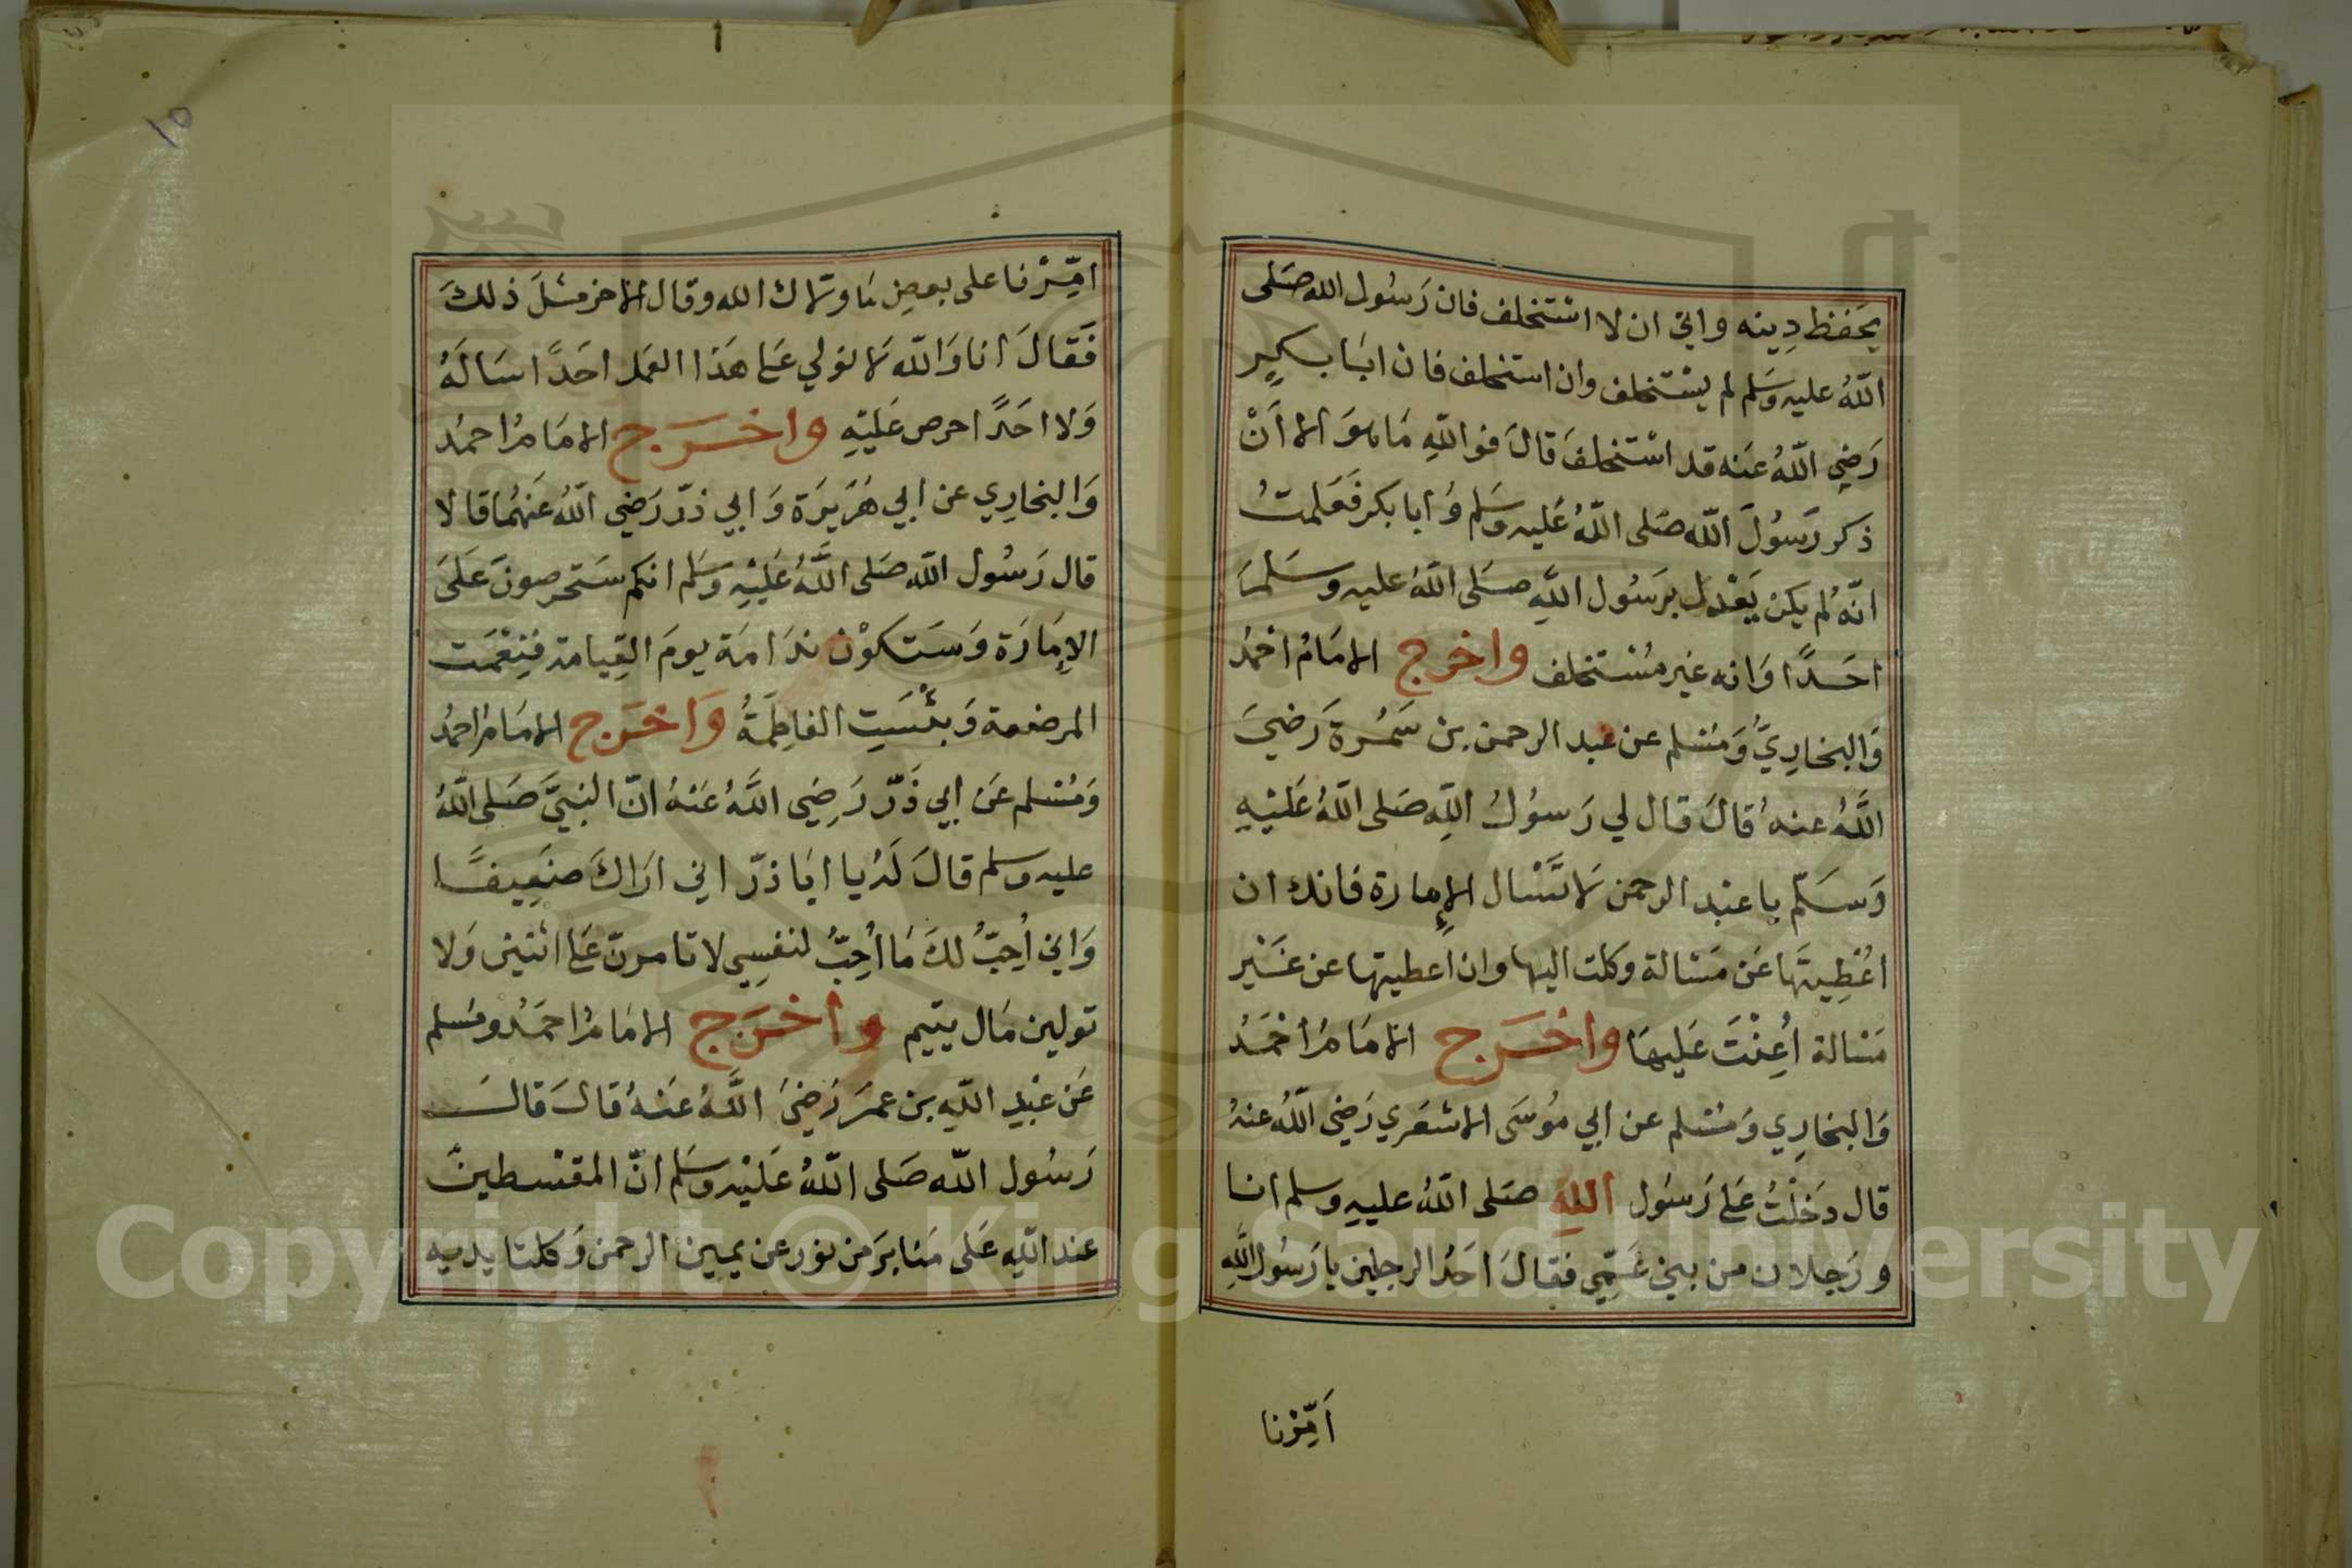 يحَفظ دِينه واني ان لا اسْتَخلف فان رَسُول الله صَلى
اللّهُ عليه وَسَلم لم يسْتَخلف وان استخلف فان ابَا بكيرٍ
رَضِي اللّهُ عَنه قد اسْتخلفَ قالَ فواللّهِ مَا هوَ الا اَنْ
ذكر رَسُولَ اللّه صَلى اللّهُ عَليه وسَلم وَابا بكر فَعَلمتُ
انّهُ لم يكن يَعْدل برَسُول اللّهِ صَلى اللّهُ عليه وسَلمَ
احَدًا وَانه غير مُسْتخلف واخرج الامَامُ احْمدُ
وَالبخاريّ وَمسْلم عن عبد الرحمن بن سَمُرة رَضيَ
اللّهُ عنهُ قالَ قال لي رَسوُلُ اللّهِ صَلى اللّهُ عَليْهِ
وَسَلّم يا عبْد الرحمن لَا تَسْال الإمارة فانك ان
اعُطِيتَها عَن مَسْالة وكلت اليها وان اعطيتها عن غَيْر
مَسْالة اُعِنْتَ عَليهَا واخرَج الامَامُ أحْمَدُ
وَالبخارِي وَمسْلم عن ابي مُوسَى الاشعَري رَضِي اللّهُ عنهُ
قال دَخلْتُ عَلى رَسُول اللهِ صَلى اللّهُ عليهِ وسلم انا
ورَجلان من بني عَمِّي فقالَ احَدُ الرجلين يا رَسُول اللَّهِ
اَمِّرْنا
امِّرْنا على بعض مَا ولاك الله وقال الاخر مثلَ ذلكَ
فَقالَ انا وَاللّه لَا نولي عَلى هَذا العَمل احَدًا سَالَهُ
وَلا احَدًا حرص عَليْهِ واخرَج الامَامُ احمدُ
وَالبخارِي عن ابي هُرَيرَة وَابي ذرّ رَضي اللّهُ عَنهُما قالا
قال رَسُول اللّه صَلى اللَّهُ عَليْهِ وسَلم انكم سَتحرصونَ عَلىَ
الإمَارَة وَسَتكوْن ندَامَة يومَ القِيامة فنِعْمَت
المرضعة وَبئْسَتِ الفاطِمَةُ وَاخرَج الامَامُ احمدُ
وَمُسْلم عَن ابي ذَرّ رَضِي اللَّهُ عَنهُ انّ النبيَّ صَلى اللّهُ
عليه وسلم قالَ لَهُ يا ابَا ذرّ اني ارَاكَ ضعِيفًا
وَاني اُحِبُّ لكَ مَا اُحِبُّ لنفسِي لا تامرنّ عَلى اثنين وَلا
تولين مَال يتيم واخرَج الامَامُ احمَدُ ومسلم
عَن عَبْدِ اللّهِ بن عمرَ رَضيَ اللَّهُ عَنهُ قالَ قالَ
رَسُول اللّه صَلى اللّهُ عَليْه وسَلم انّ المقسْطينَ
عند اللّهِ عَلى مَنابرَ من نورعن يمين الرحمن وَكلتا يديه
١٥
Copyright © King Saud University